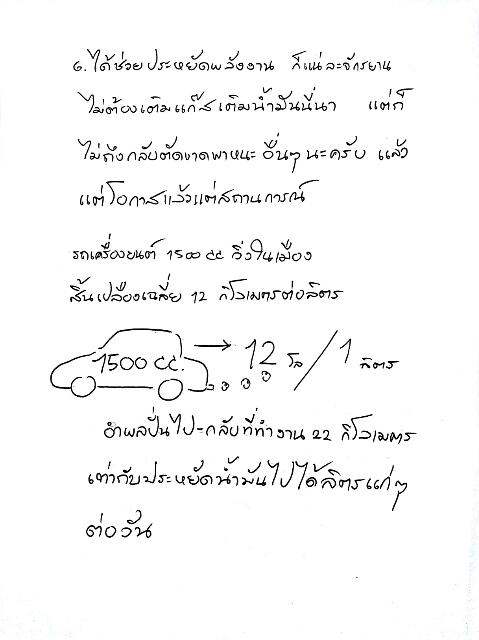 ๖. ได้ช่วยประหยัดพลังงาน ก็แน่ละจักรยาน
ไม่ต้องเติมแก๊สเติมน้ำมันนี่นา แต่ก็
ไม่ถึงกลับตัดขาดพาหนะอื่นๆนะครับ แล้ว
แต่โอกาสแล้วแต่สถานการณ์
รถเครื่องยนต์ 1500 cc วิ่งในเมือง
สิ้นเปลืองเฉลี่ย 12 กิโลเมตรต่อลิตร
1500 cc. → 12 โล / 1 ลิตร
ถ้าผมปั่นไป-กลับที่ทำงาน 22 กิโลเมตร
เท่ากับประหยัดน้ำมันไปได้ลิตรแก่ๆ
ต่อวัน